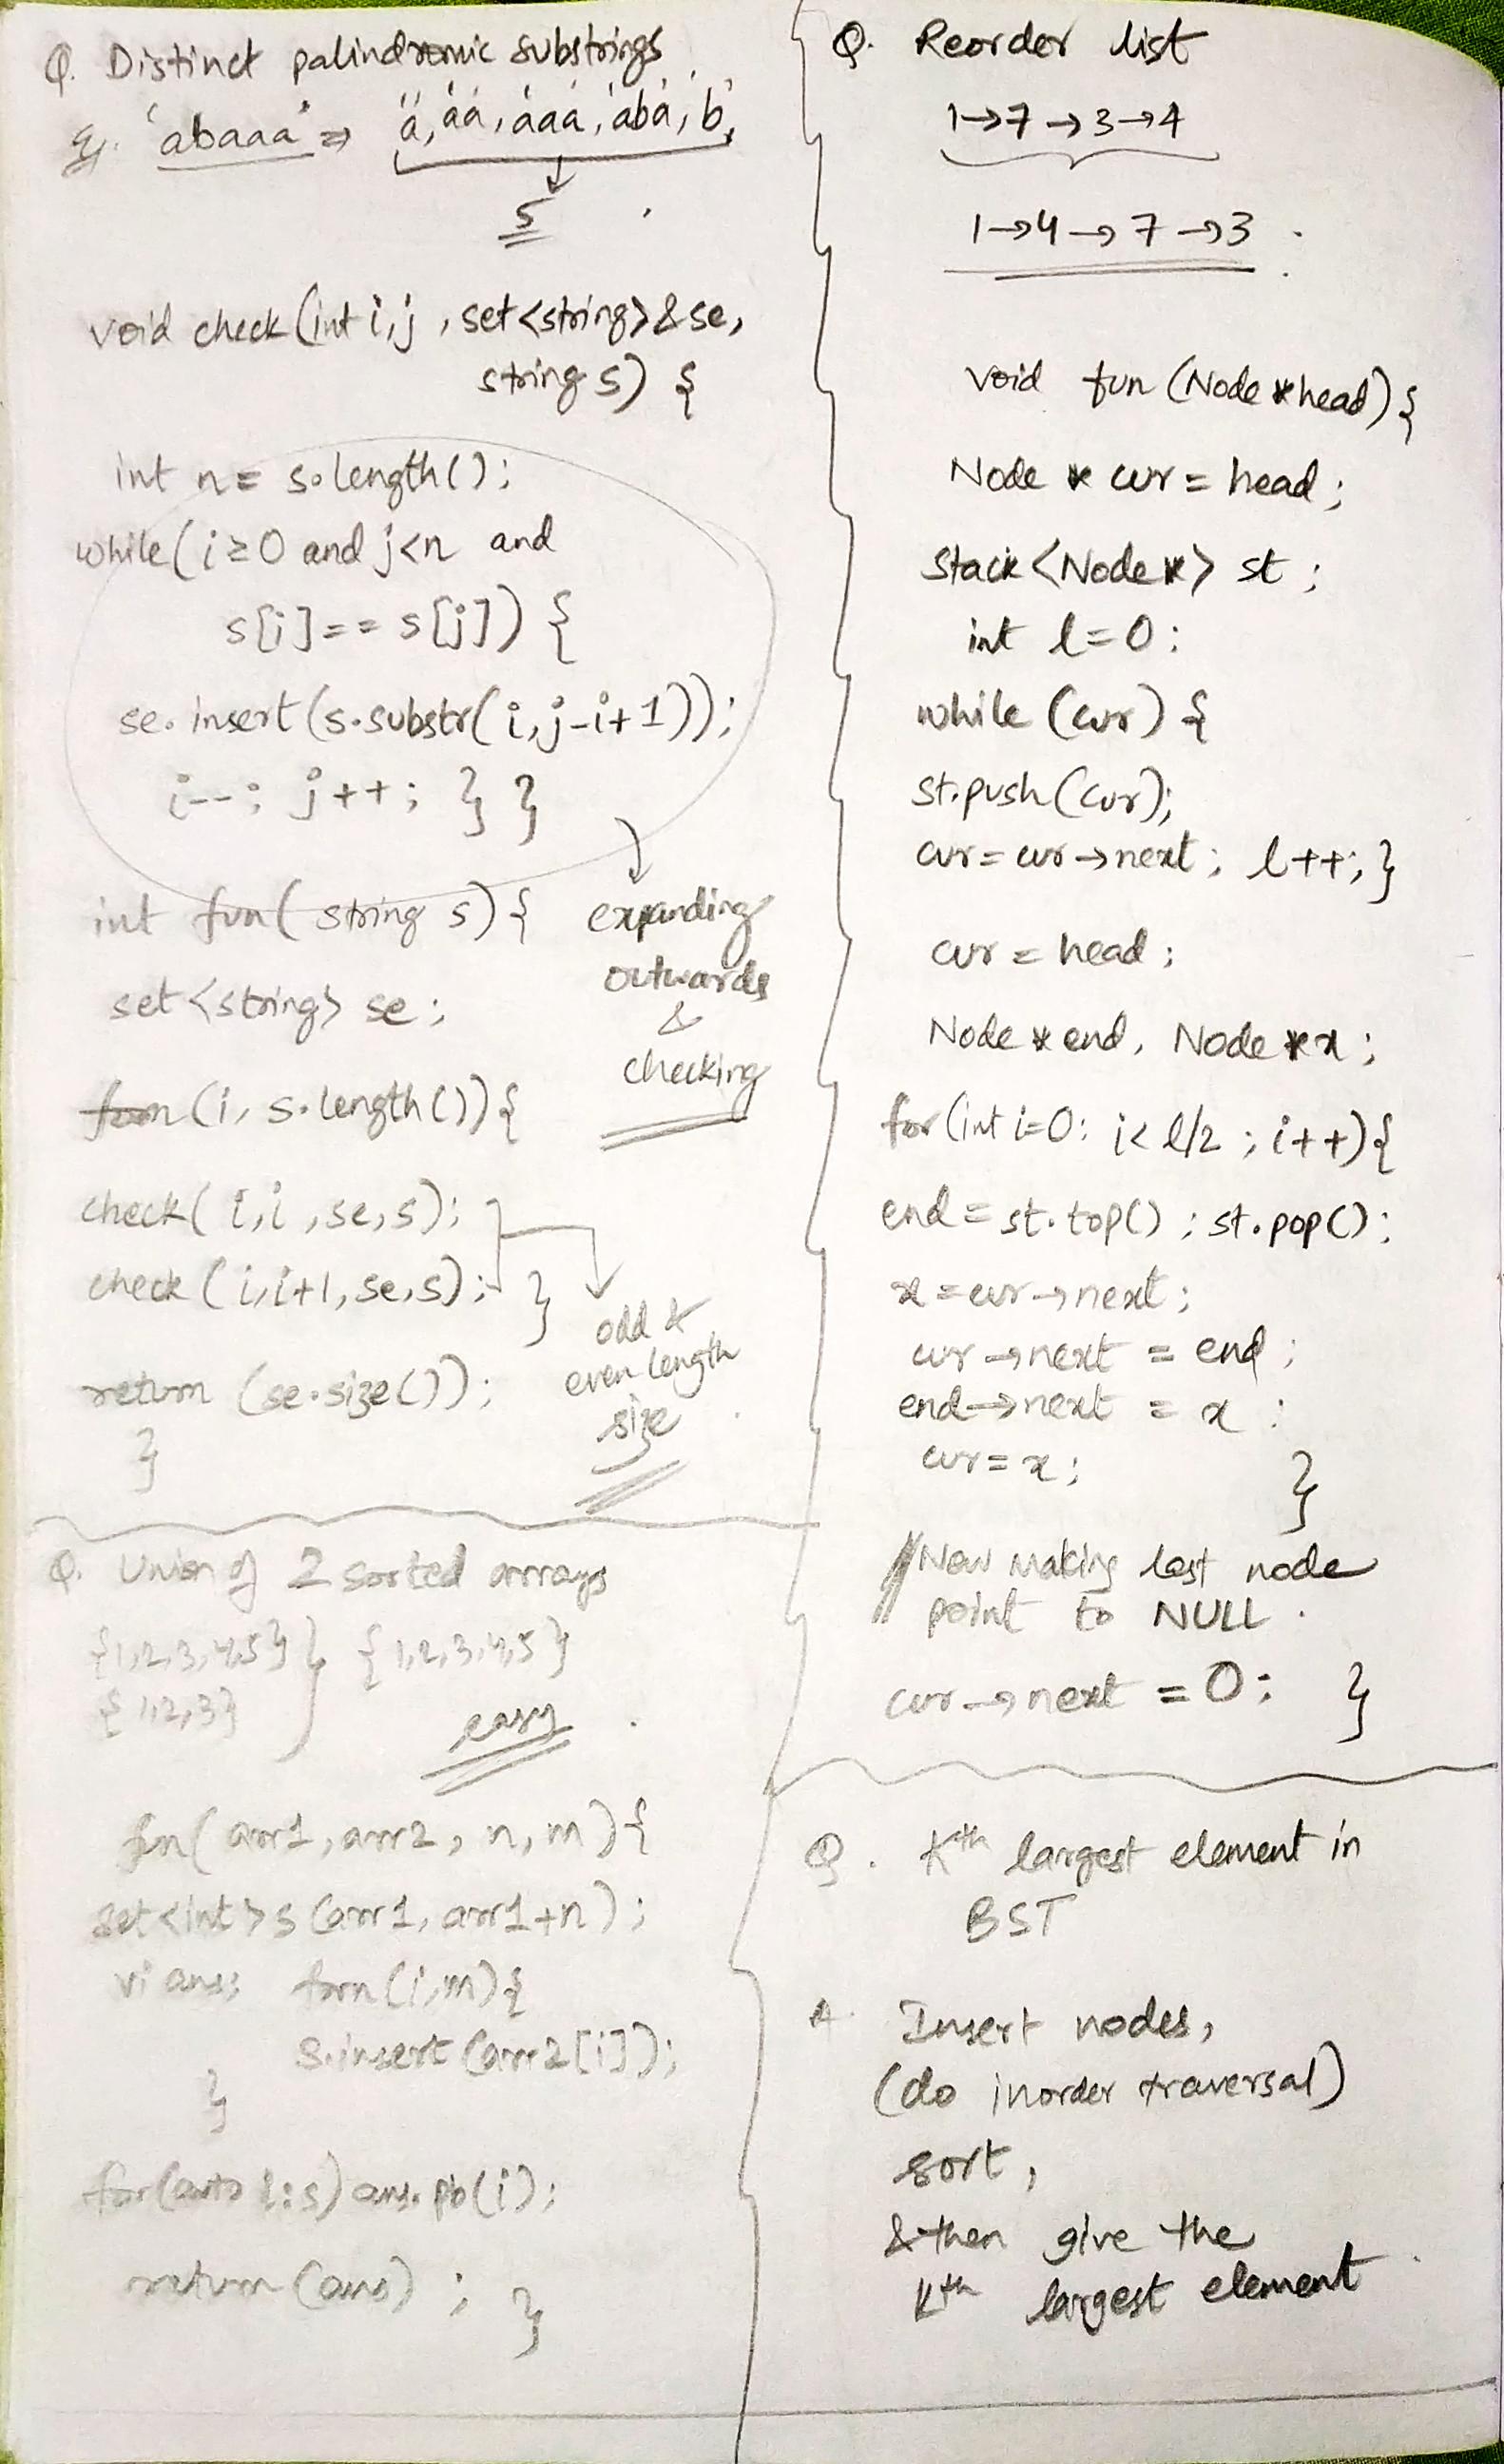 Q. Distinct palindromic substrings
Eg. 'abaaa' ⇒ 'a', 'aa', 'aaa', 'aba', 'b',
5
void check(int i,j , set<string>&se,
string s) {
int n = s.length();
while(i≥0 and j<n and
s[i]==s[j]) {
se.insert(s.substr(i,j-i+1));
i--; j++; } }
expanding
outwards
&
checking
int fun( string s) {
set<string> se;
forn(i, s.length()){
check( i,i ,se,s);
check ( i,i+1,se,s); }
odd &
even length
size
return (se.size());
}
Q. Union of 2 sorted arrays
{1,2,3,4,5} } {1,2,3,4,5}
{1,2,3}
easy
fn( arr1, arr2, n, m ){
set<int>s (arr1, arr1+n);
vi ans; forn(i,m){
s.insert(arr2[i]);
}
for(auto i:s) ans.pb(i);
return (ans) ; }
Q. Reorder list
1→7→3→4
1→4→7→3
void fun (Node *head) {
Node * cur = head;
stack <Node*> st ;
int l=0;
while (cur) {
st.push(cur);
cur=cur→next; l++; }
cur = head;
Node *end, Node *x;
for(int i=0; i< l/2 ; i++){
end = st.top() ; st.pop();
x = cur→next;
cur→next = end;
end→next = x ;
cur=x; }
// Now making last node
point to NULL.
cur→next = 0; }
Q. Kth largest element in
BST
A. Insert nodes,
(do inorder traversal)
sort,
& then give the
Kth largest element